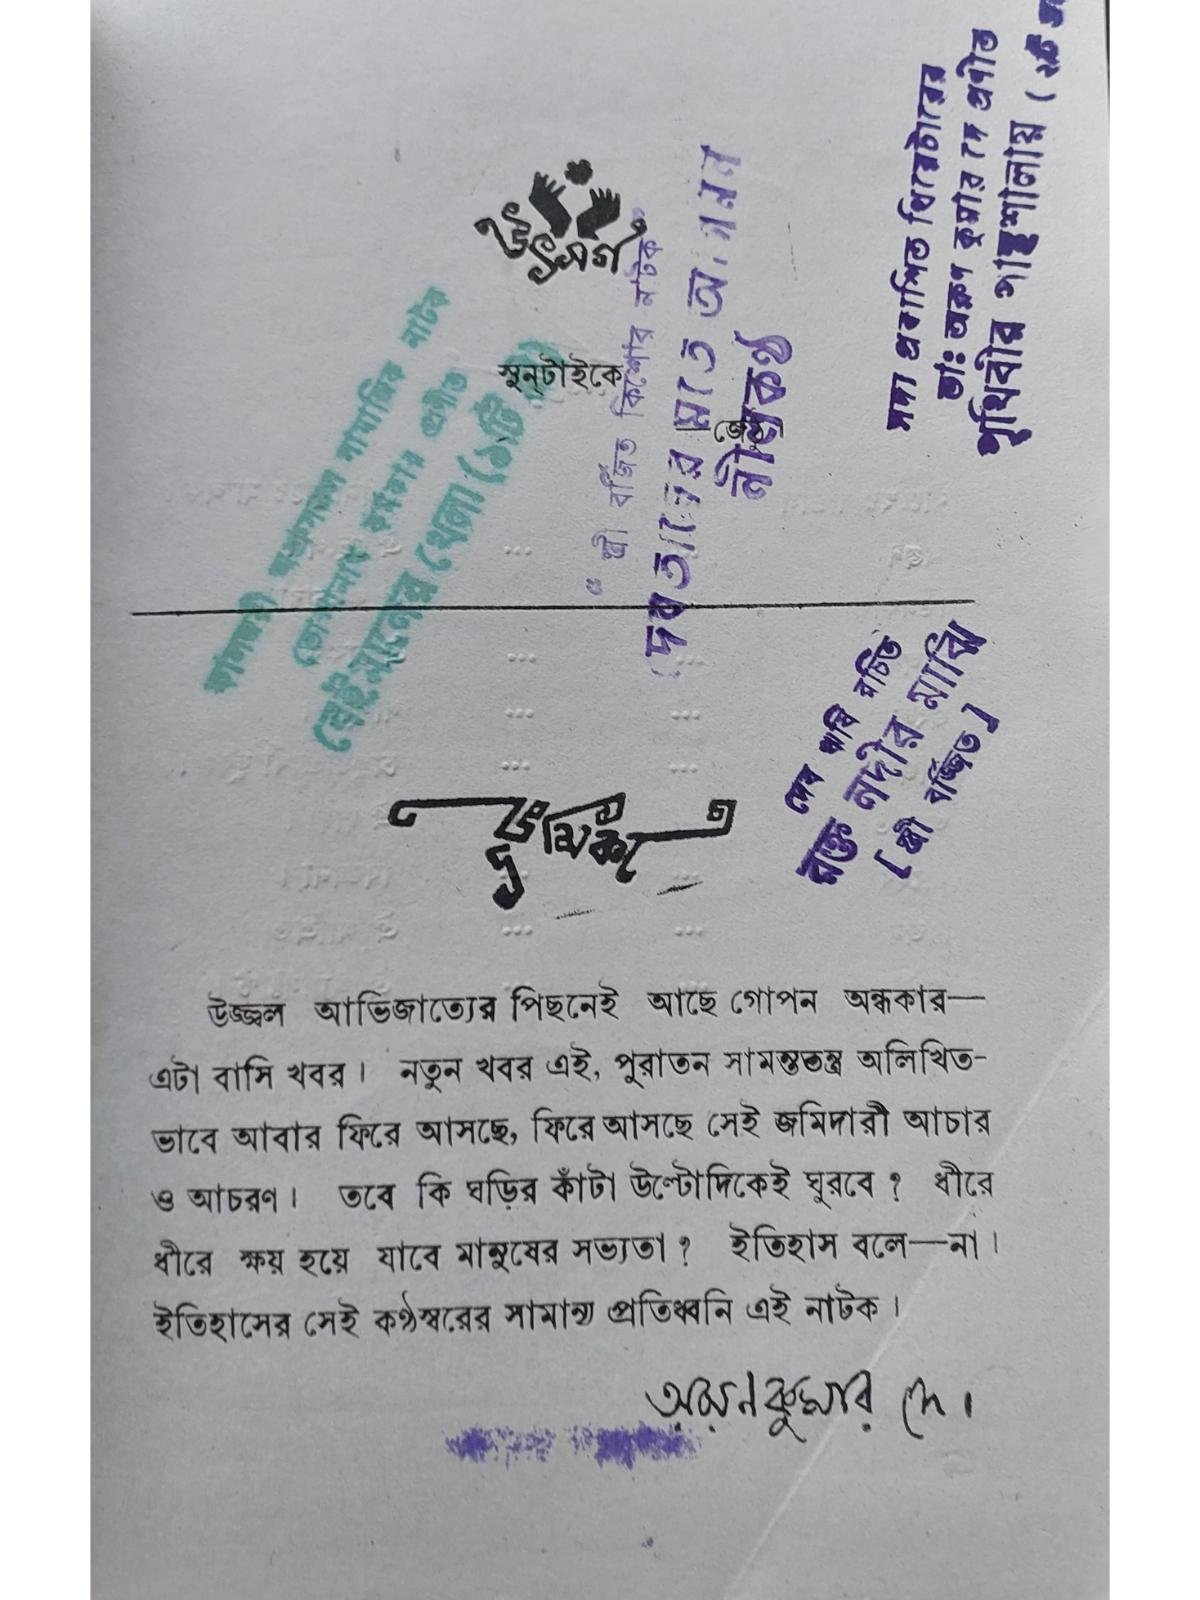 উৎসর্গ
মুন্‌টাইকে
জেঠু
ভূমিকা
উজ্জ্বল আভিজাত্যের পিছনেই আছে গোপন অন্ধকার—
এটা বাসি খবর। নতুন খবর এই, পুরাতন সামন্ততন্ত্র অলিখিত-
ভাবে আবার ফিরে আসছে, ফিরে আসছে সেই জমিদারী আচার
ও আচরণ। তবে কি ঘড়ির কাঁটা উল্টোদিকেই ঘুরবে? ধীরে
ধীরে ক্ষয় হয়ে যাবে মানুষের সভ্যতা? ইতিহাস বলে—না।
ইতিহাসের সেই কণ্ঠস্বরের সামান্য প্রতিধ্বনি এই নাটক।
কুমার দে।
সদ্য প্রকাশিত থিয়েটারের
ডাঃ অরুণ কুমার দে প্রণীত
পৃথিবীর পান্থশালায়
"স্ত্রী বর্জিত কিশোর নাটক"
দেবতাদের মাত
নীলকণ্ঠ
কালজয়ী অশ্রুসজল সামাজিক নাটক
ভোলানাথ কর্মকার প্রণীত
বেইমানের খেলা (১টি স্ত্রী)
দেব ঋষি রচিত
রক্ত নদীর মাঝি
[স্ত্রী বর্জ্জিত]